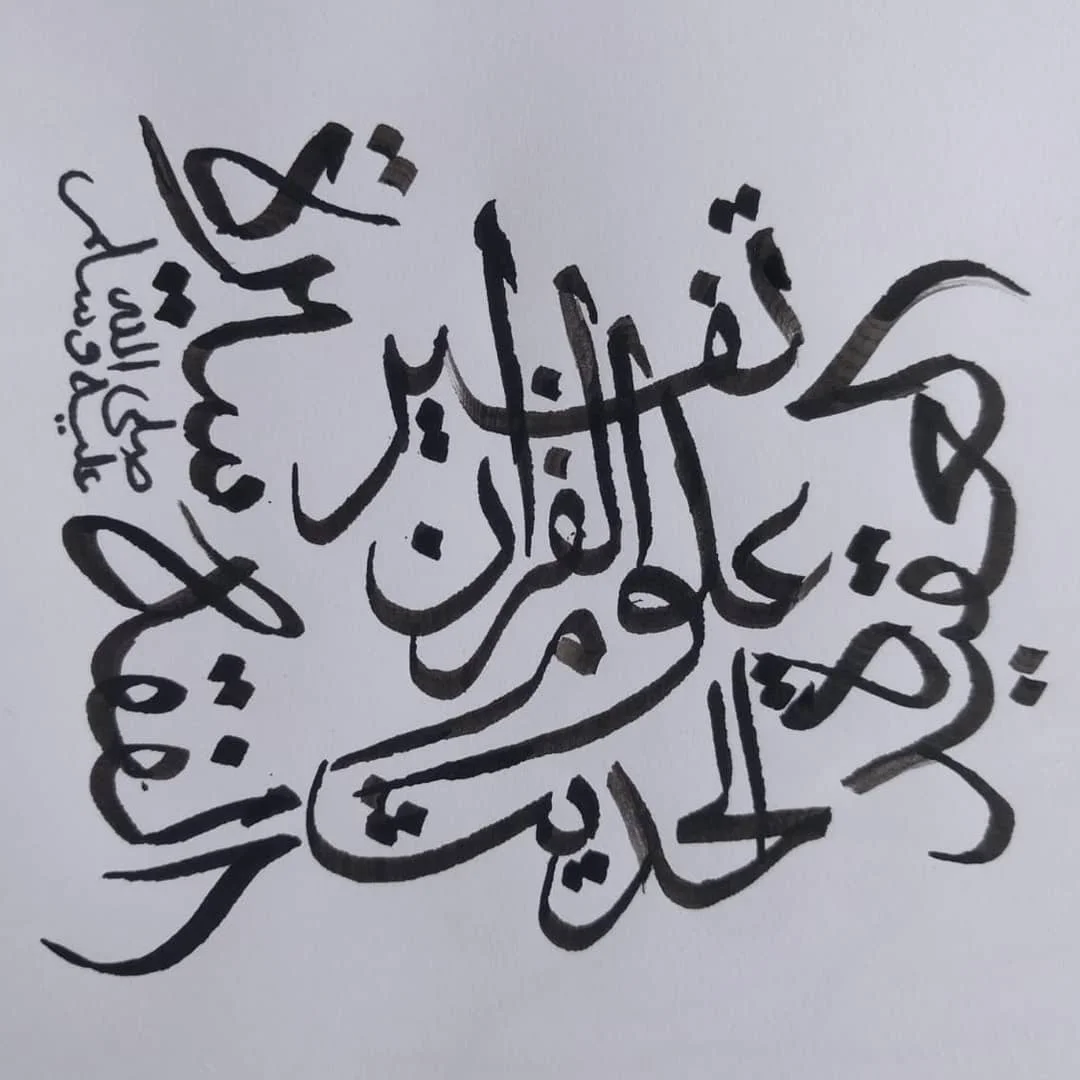 تفسير
علوم القرآن
الحديث
عقيدة
الفقه
سيرة
صلى الله
عليه وسلم